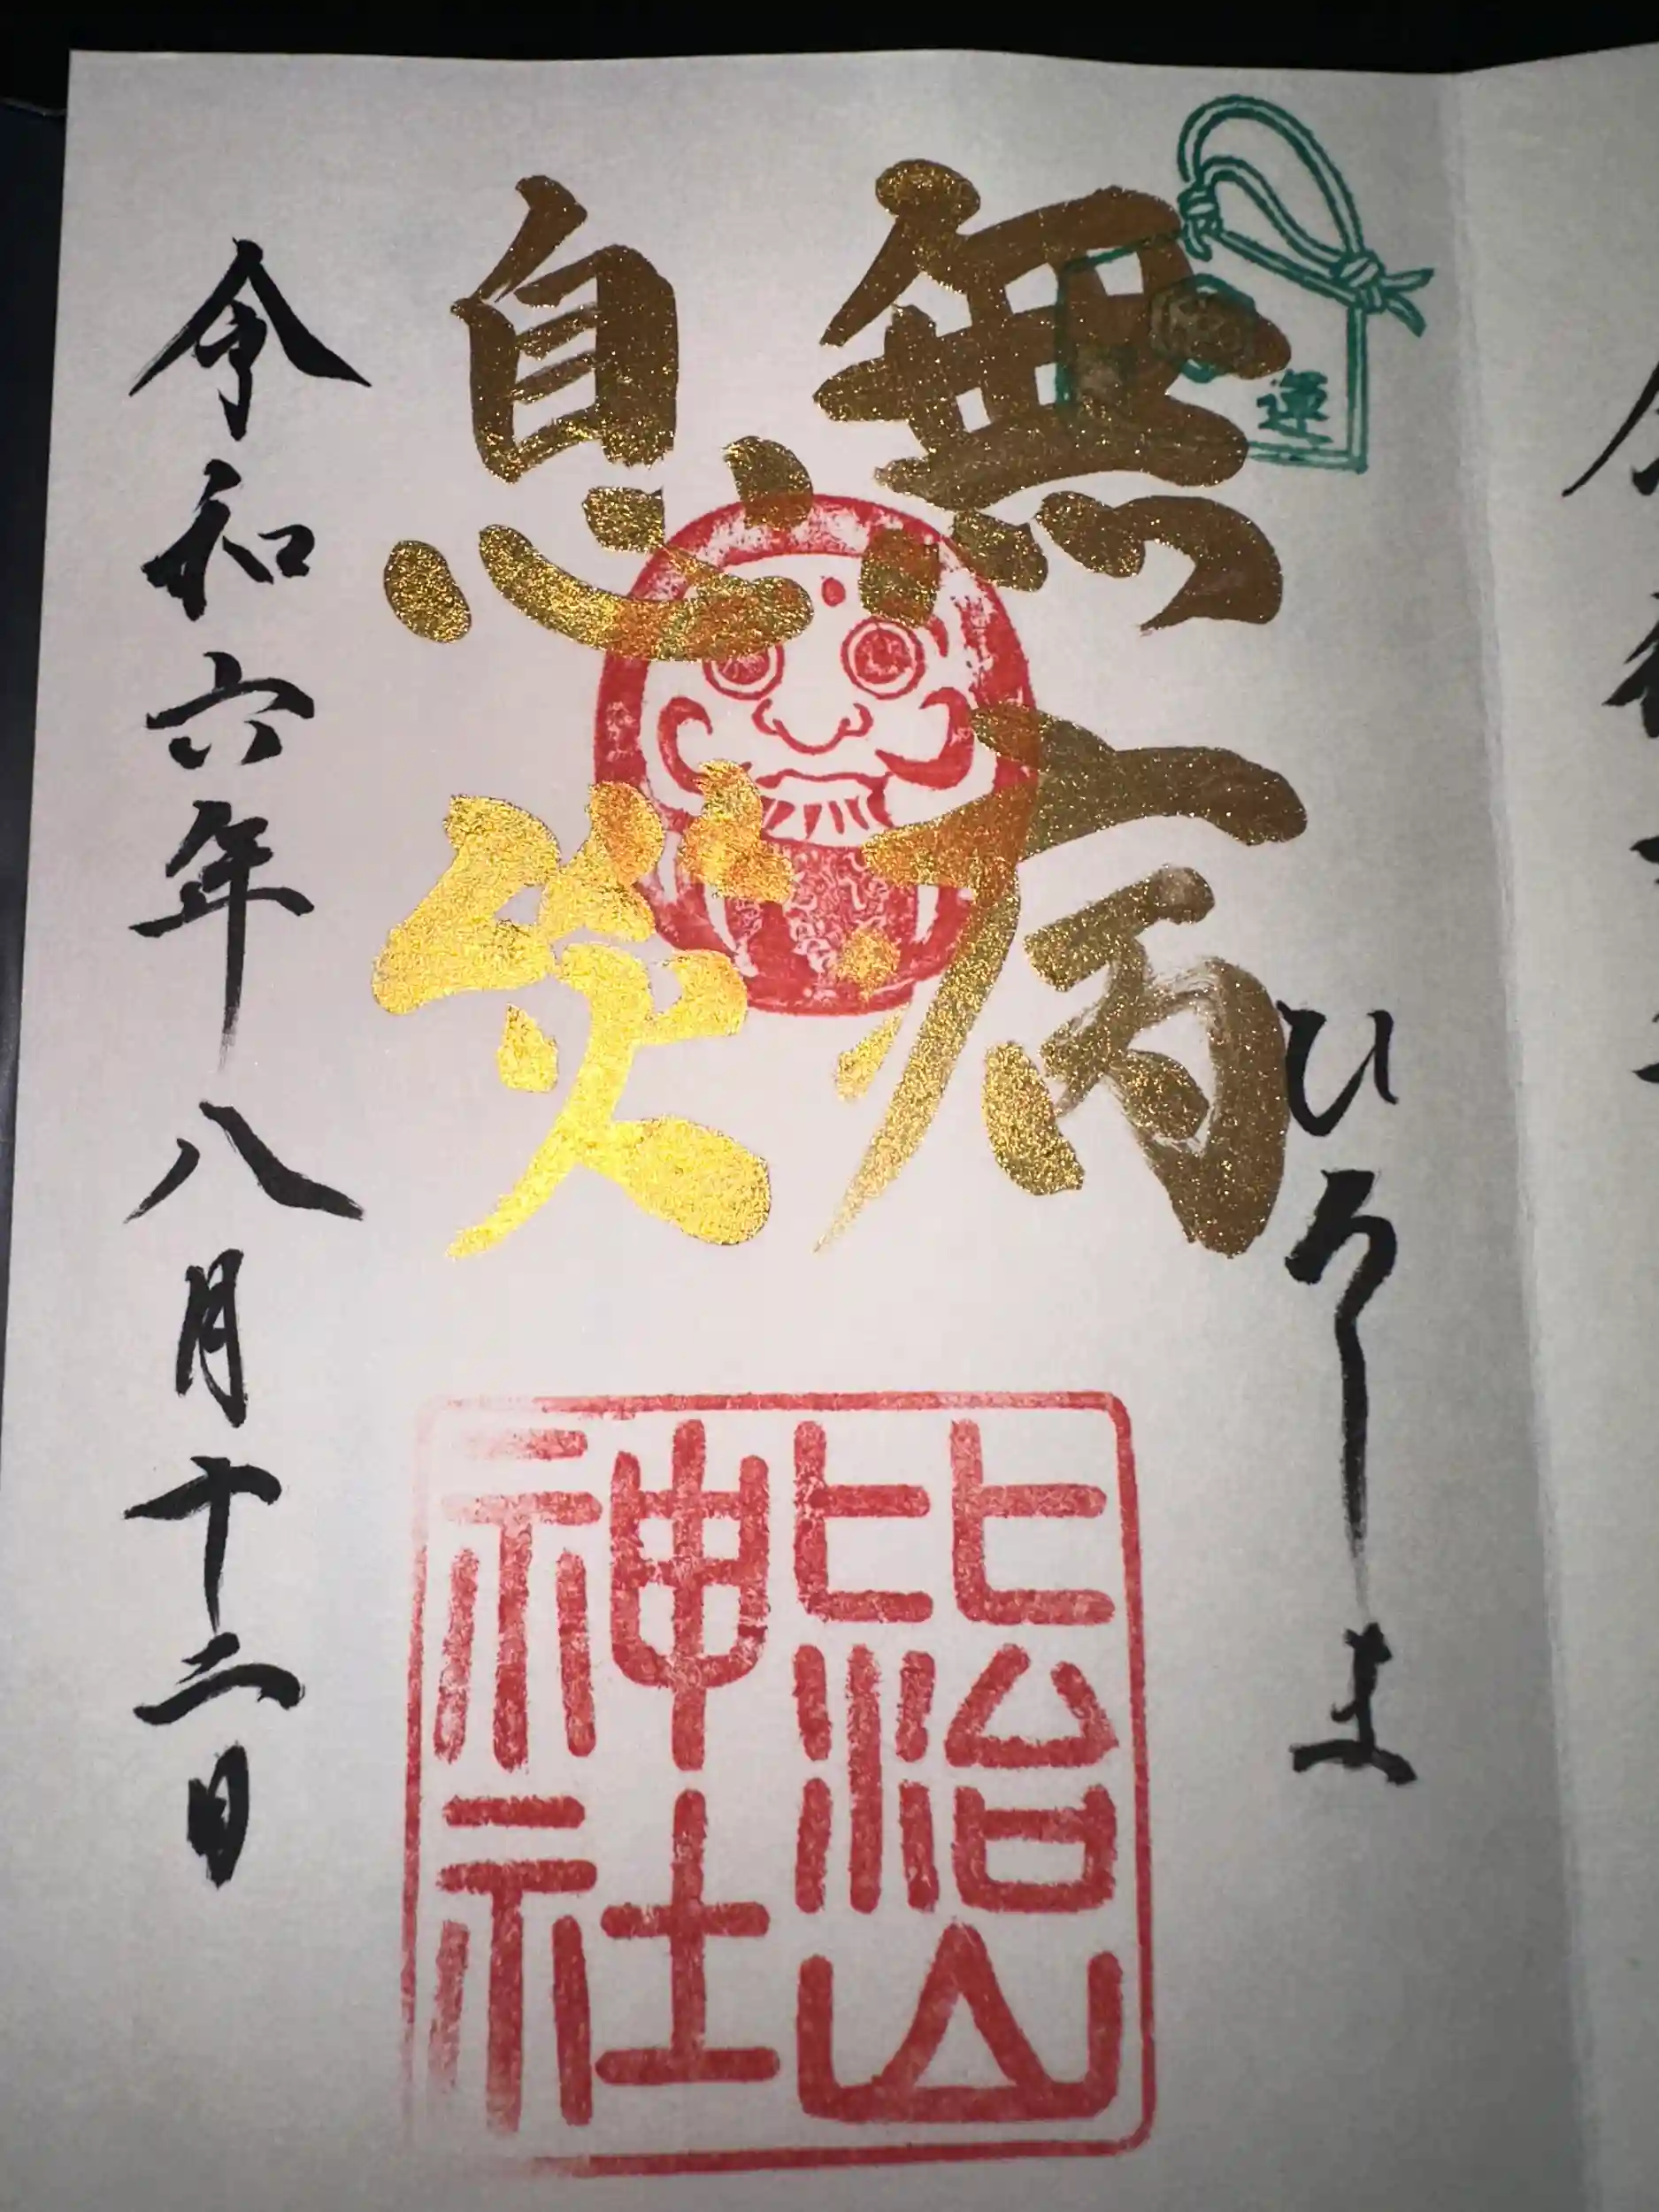 運
ひろしま
無病
息災
比治山
神社
令和六年八月十二日